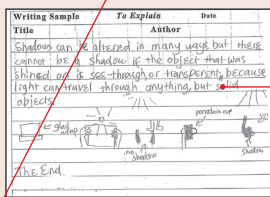 Writing Sample To Explain Date
Title Author
Shadows can be altered in many ways but there
cannot be a shadow if the object that was
shined on is see-through or transparent, because
light can travel through anything, but solid
objects.
porcelain cup
glad wrap
no shadow
Shadow
The End.